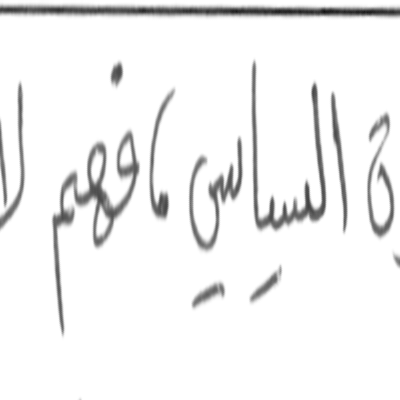 السياسي ، فهم لا